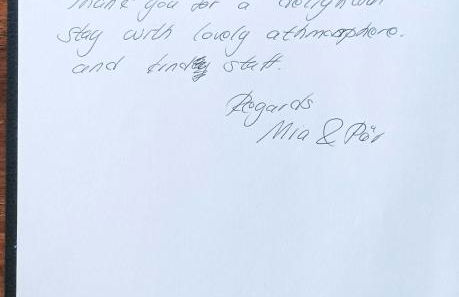 Thank you for a delightful
stay with lovely athmosphere.
and staff.
Regards
Mia & Pär